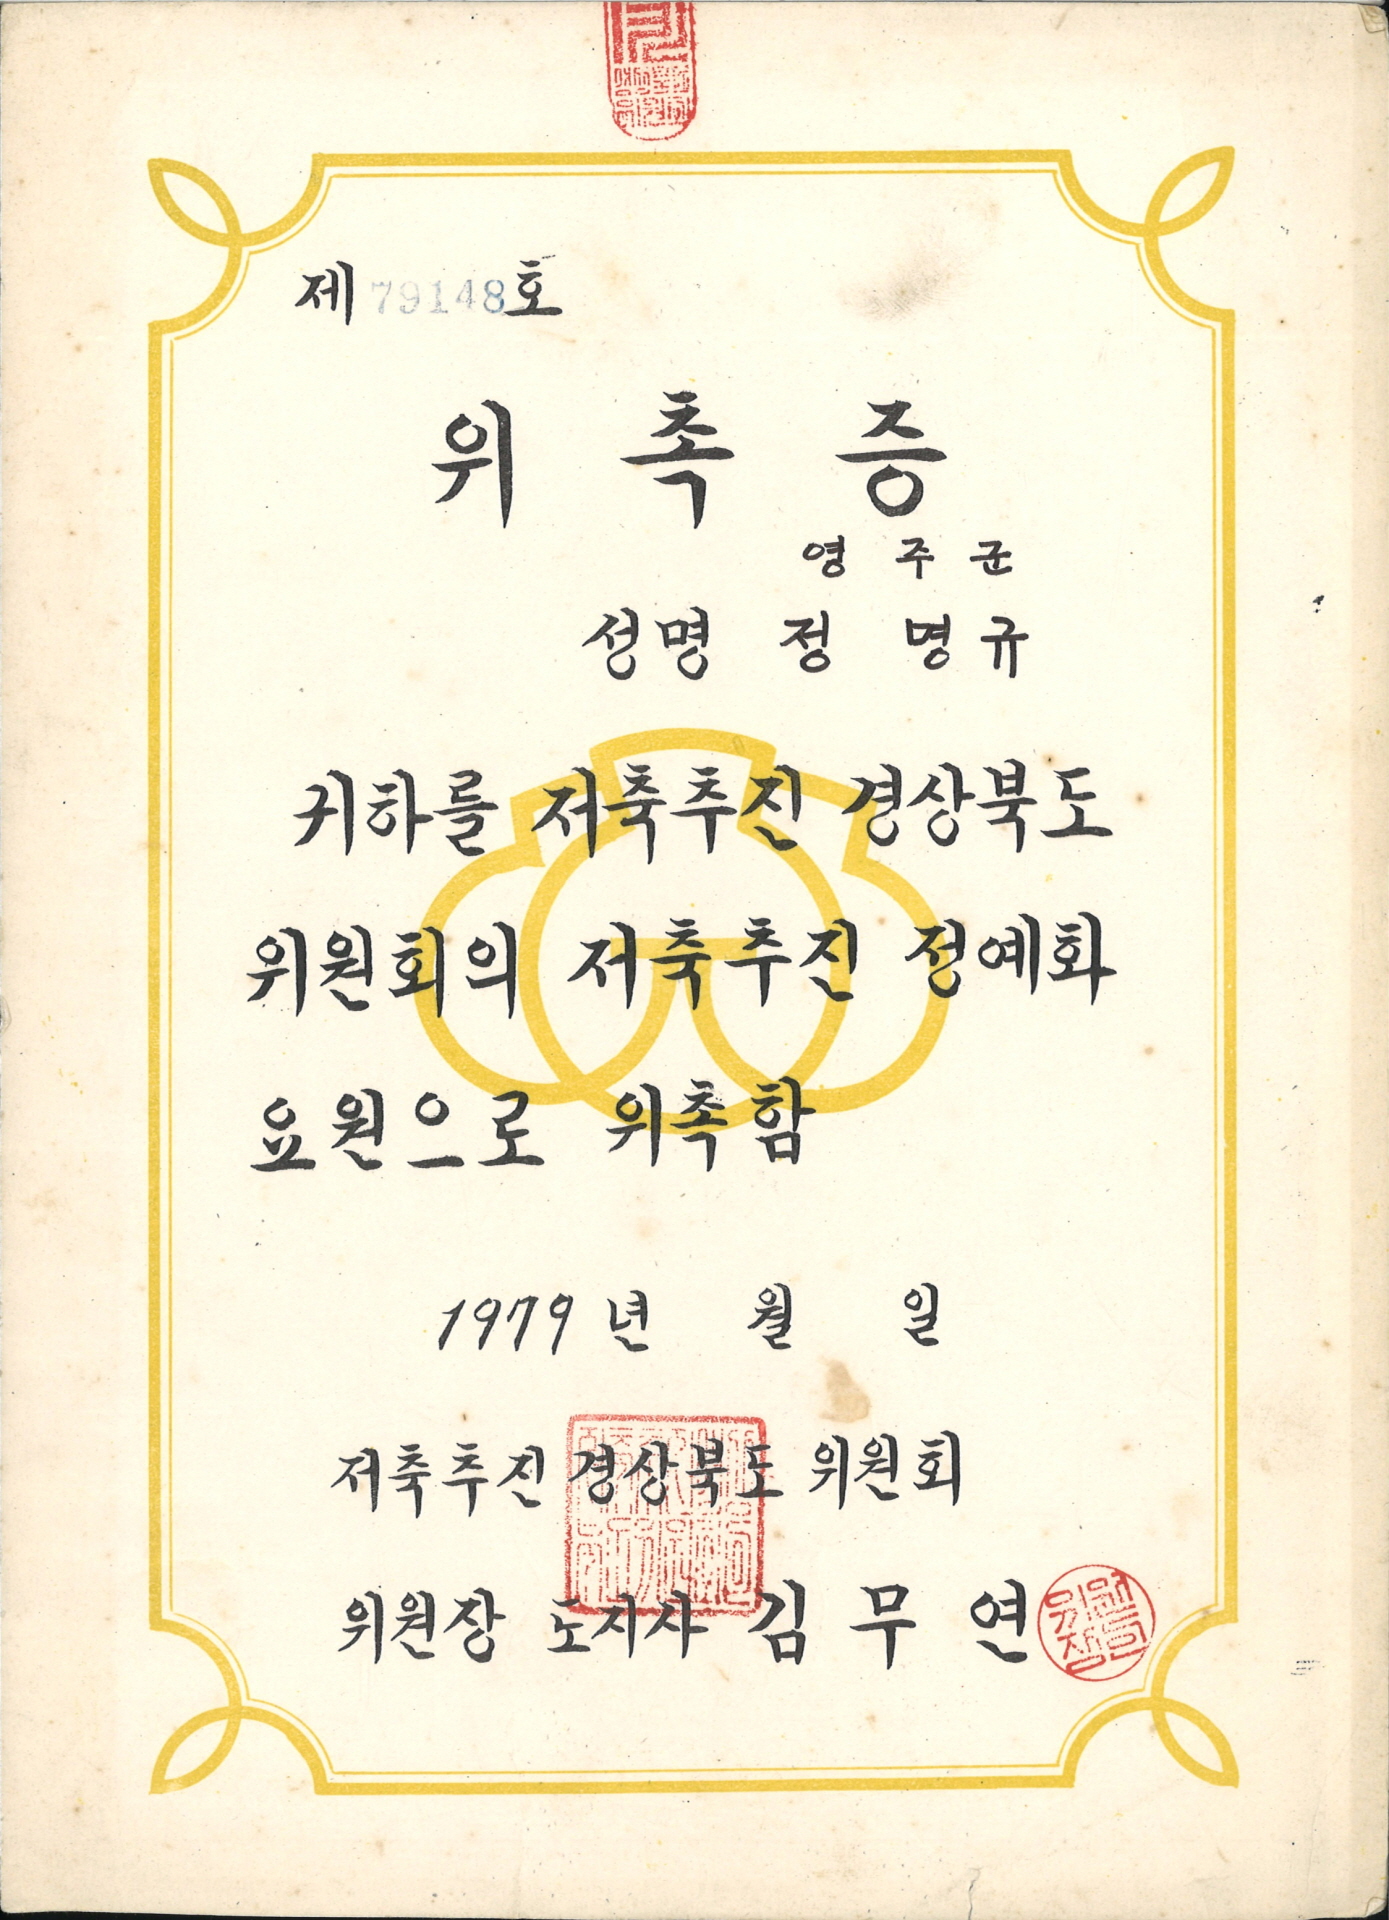 제 79148호
위 촉 증
영 주 군
성명 정 명 규
귀하를 저축추진 경상북도
위원회의 저축추진 정예화
요원으로 위촉함
1979 년 월 일
저축추진 경상북도 위원회
위원장 도지사 김 무 연